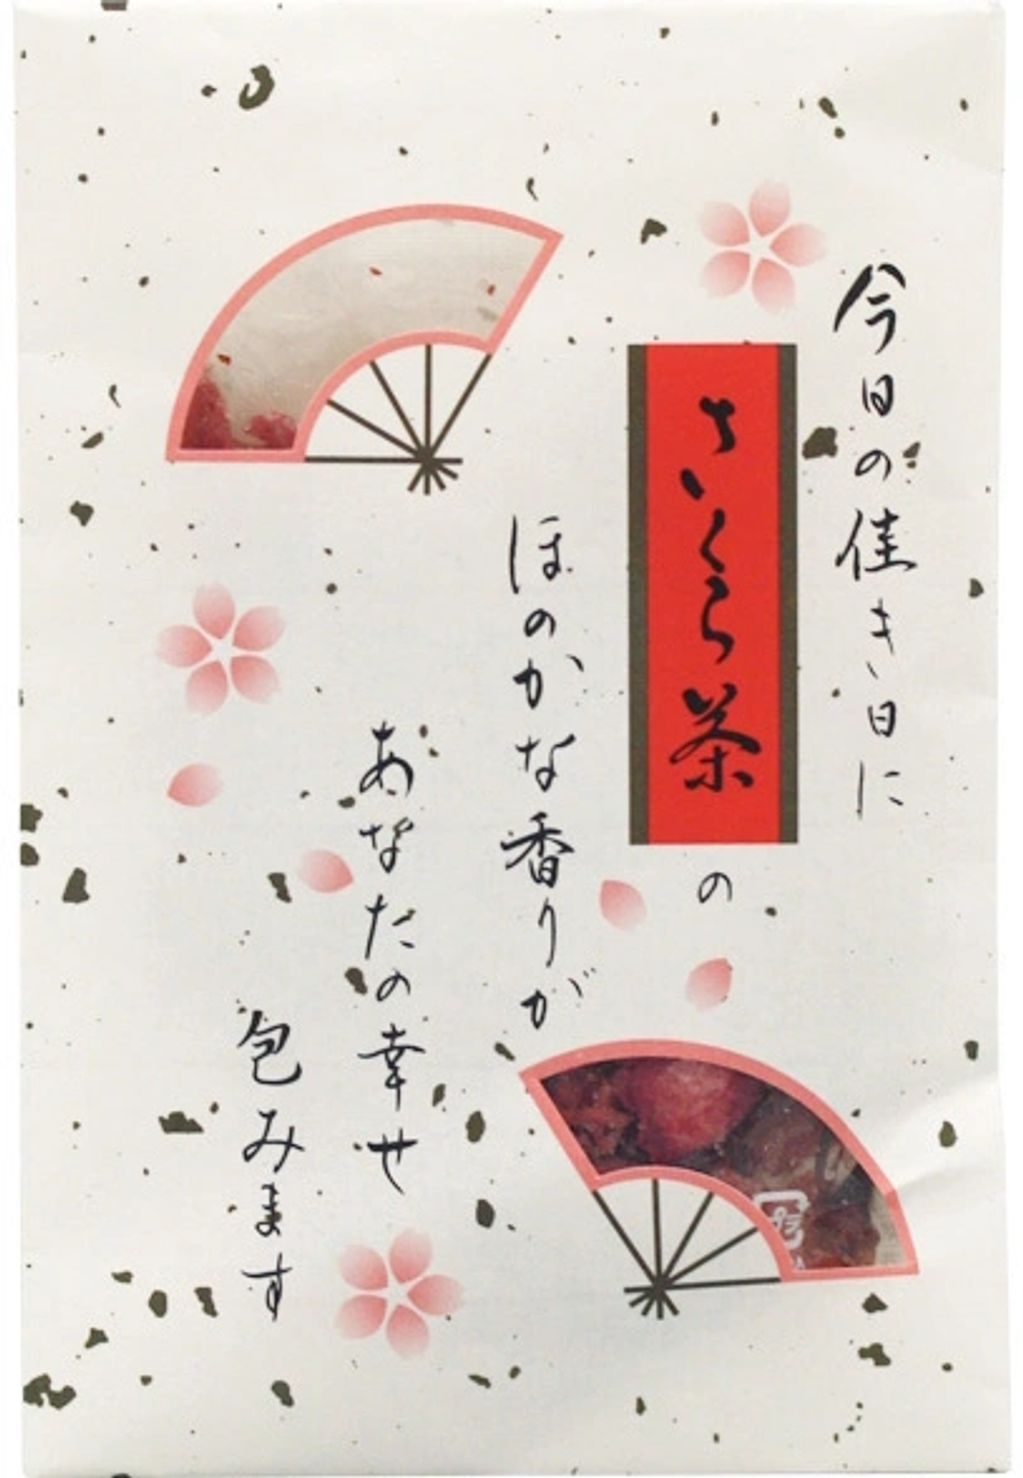 今日の佳き日に
さくら茶
の
ほのかな香りが
あなたの幸せ
包みます
プラ